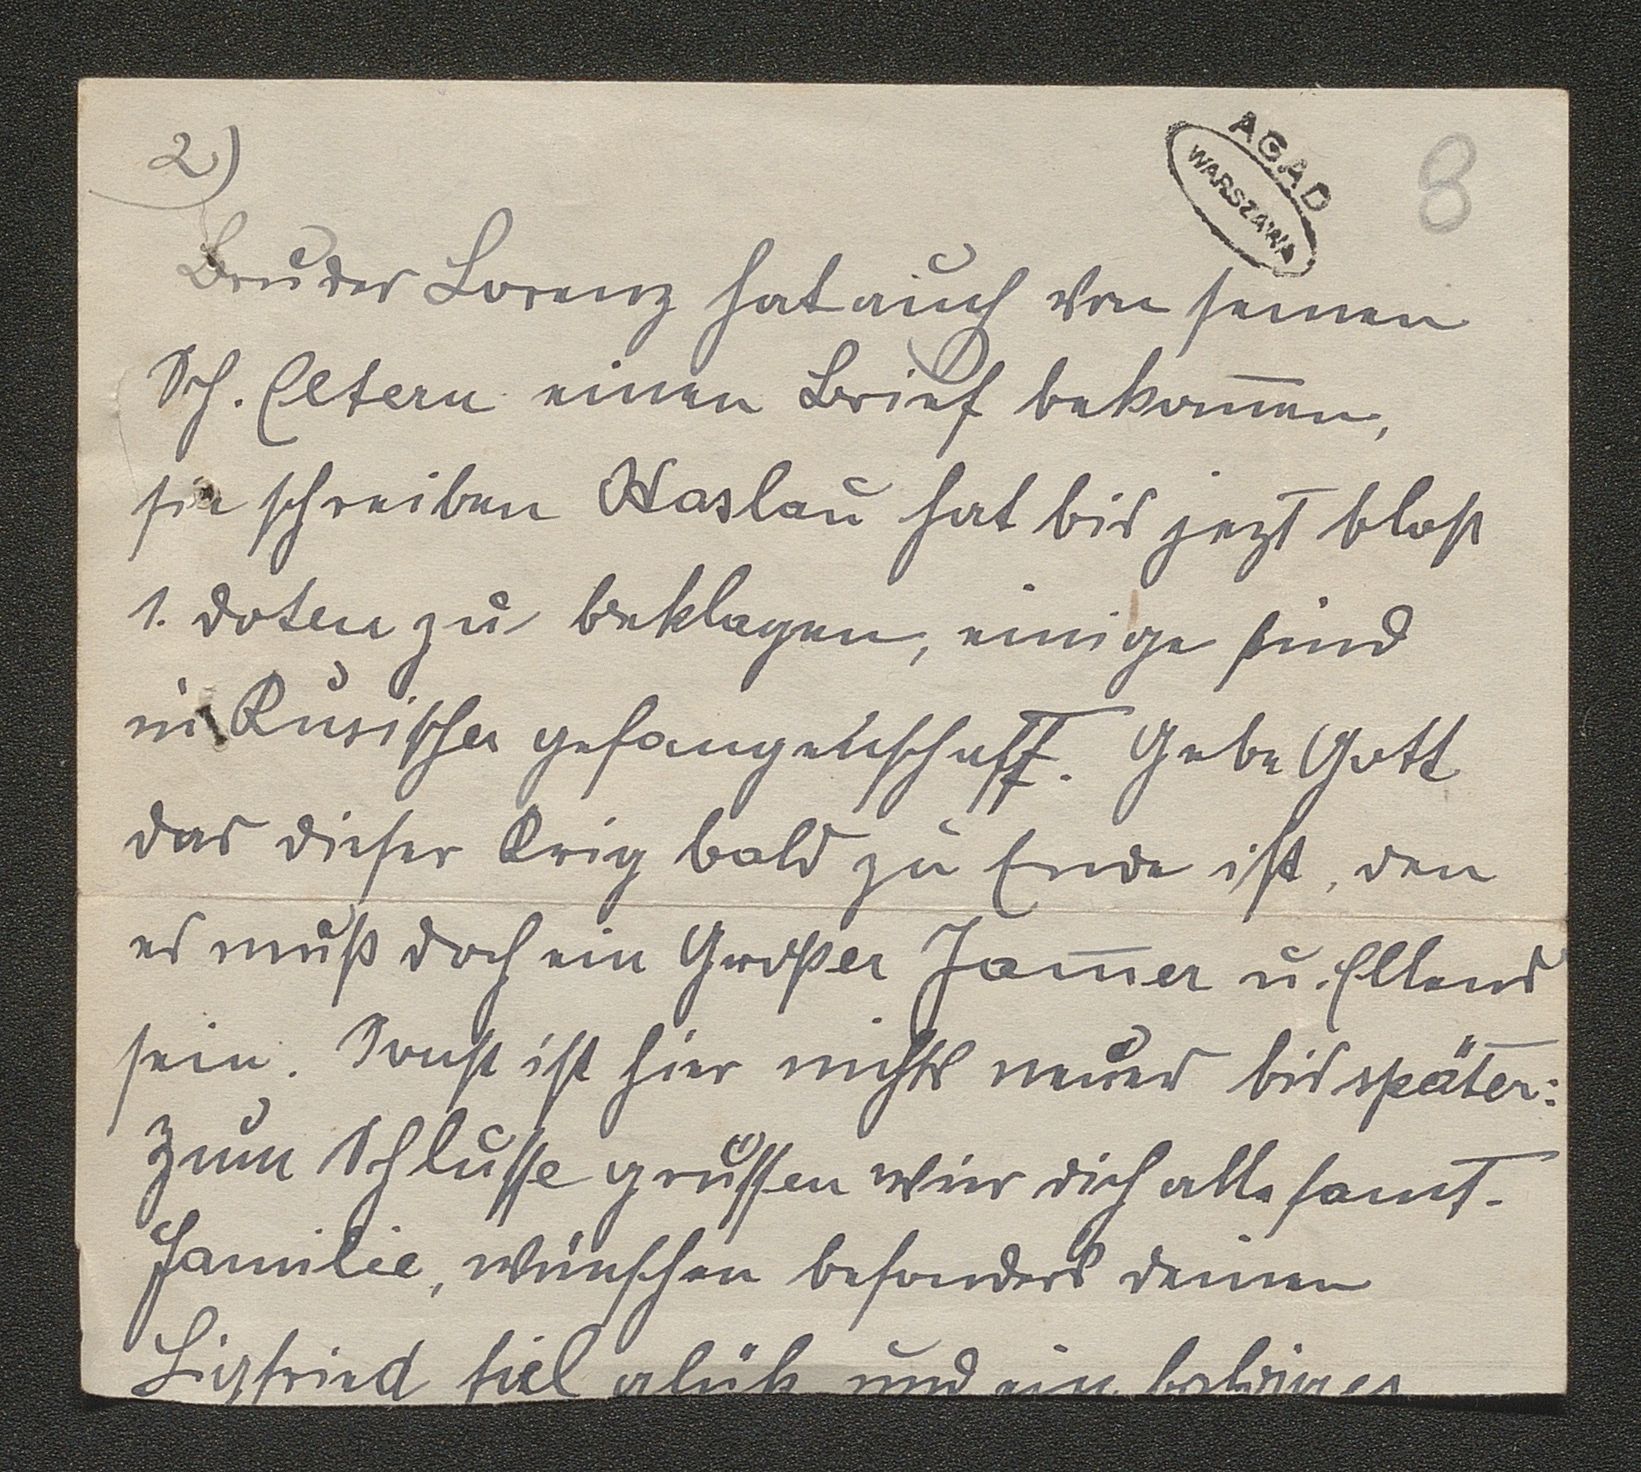 2)
AGAD
WARSZAWA
8
Bruder Lorenz hat auch von seinen
Sch. Eltern einen Brief bekom̅en,
sie schreiben Haslau hat bis jezt blos
1. doten zu beklagen, einige sind
in Rusischer gefangenschaft. Gebe Gott
das dieser Krig bald zu Ende ist, den
es muß doch ein Großer Jam̅er u. Ellend
sein. Sonst ist hier nichts neues bis später:
zum Schlusse grüssen wir dich alle samt.
Familie, wünschen besonders deinen
Sigfried fiel glük und ein baldiges